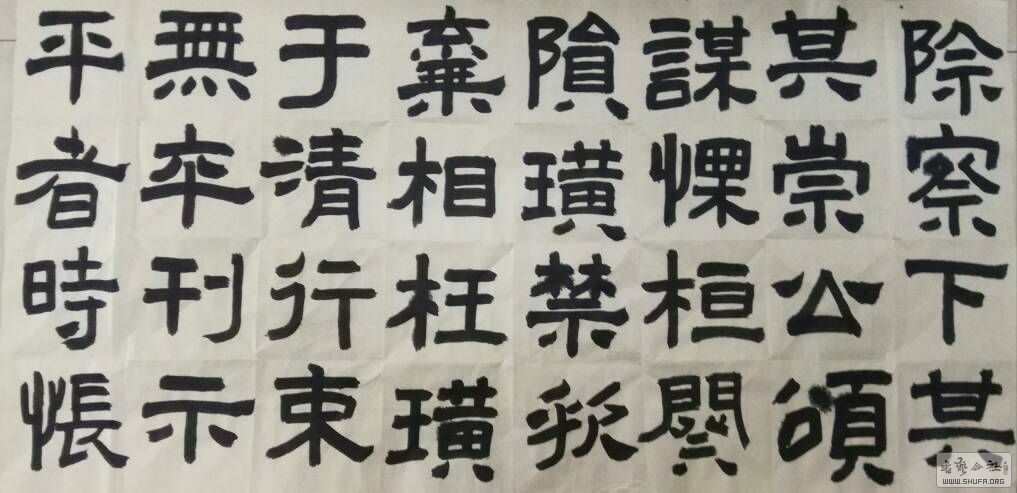 除察下其
其崇公頌
謀慄桓
隕璜禁
棄相枉璜
于清行束
無卒刊示
平者時悵
書藝公社
WWW.SHUFA.ORG